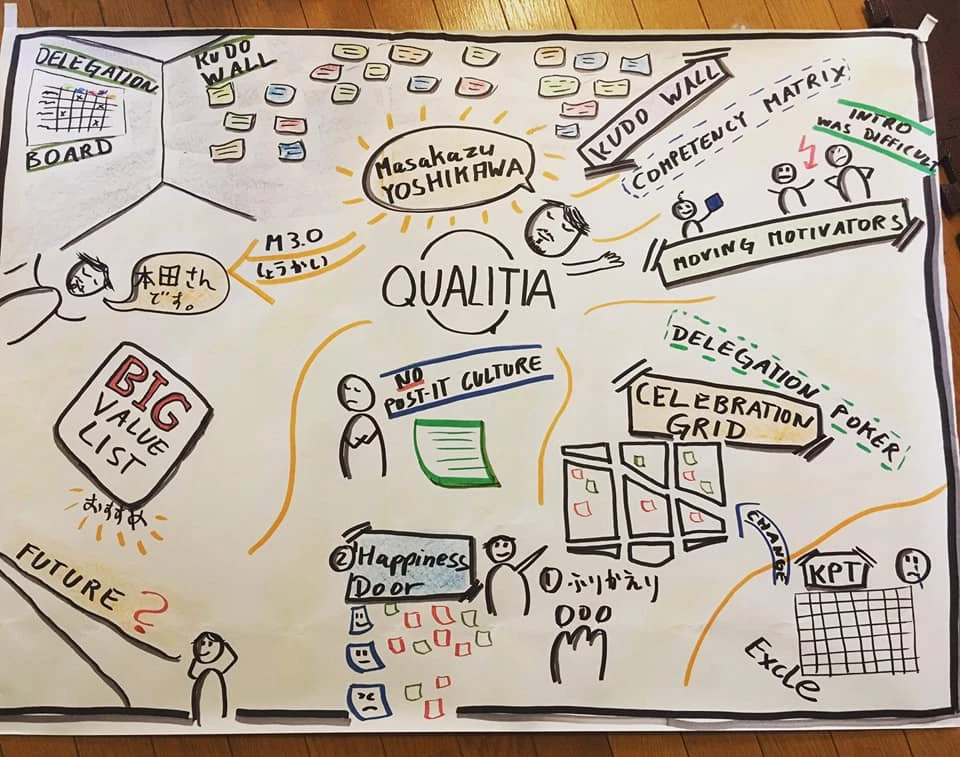 DELEGATION
BOARD
KUDO
WALL
Masakazu
YOSHIKAWA
KUDO WALL
COMPETENCY MATRIX
INTRO
WAS DIFFICULT
MOVING MOTIVATORS
M3.0
しょうかい
本田さん
です。
QUALITIA
BIG
VALUE
LIST
おすすめ
NO
POST-IT CULTURE
DELEGATION POKER
CELEBRATION
GRID
CHANGE
KPT
Excle
② Happiness
Door
① ふりかえり
FUTURE ?